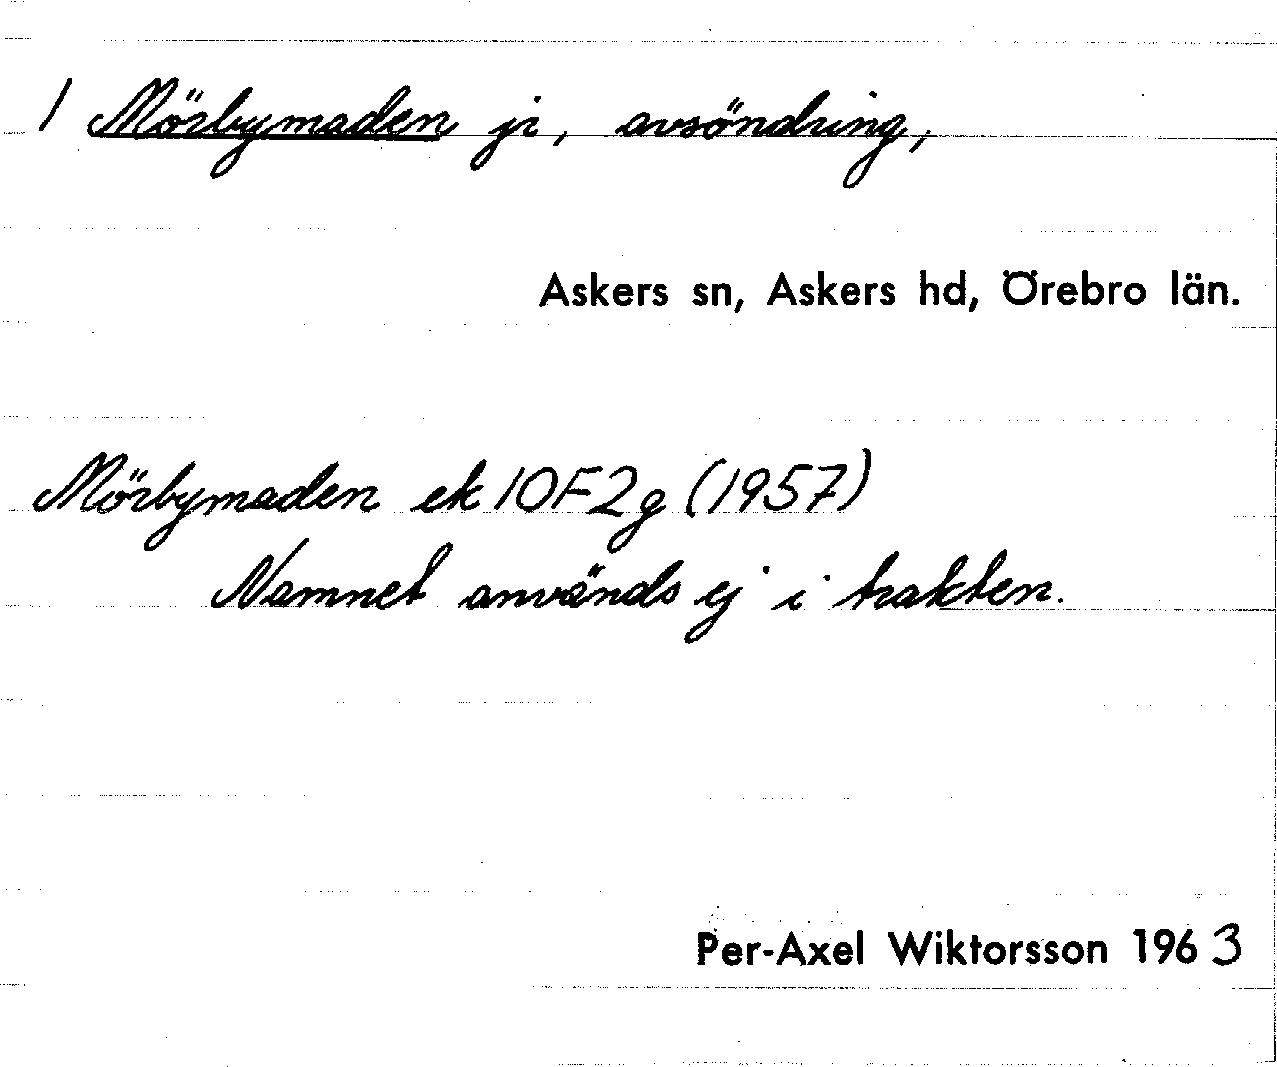 1 Mörbymaden jr, avsöndring,
Askers sn, Askers hd, Örebro län.
Mörbymaden ek 10F2g (1957)
Namnet används ej i trakten.
Per-Axel Wiktorsson 1963